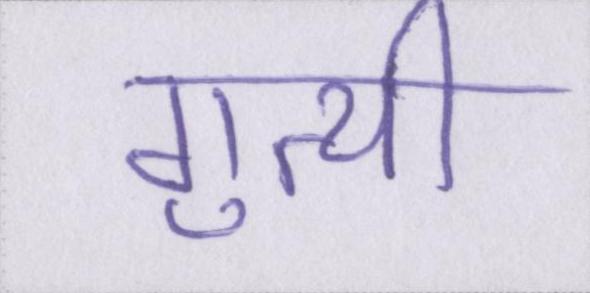 गुत्थी